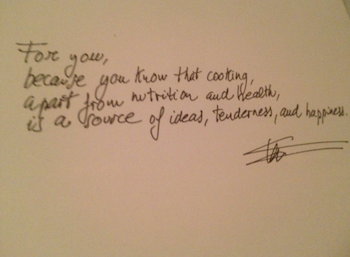 For you,
because you know that cooking,
apart from nutrition and health,
is a source of ideas, tenderness, and happiness.